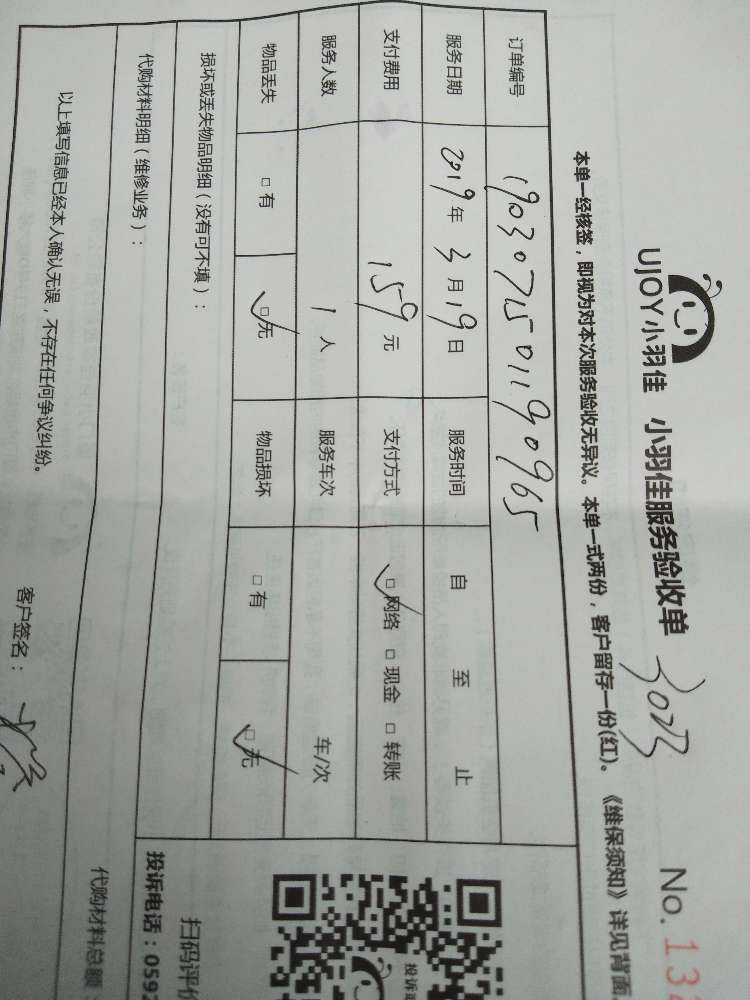 UJOY小羽佳 小羽佳服务验收单 No.13
本单一经核签，即视为对本次服务验收无异议。本单一式两份，客户留存一份(红)。《维保须知》详见背面
订单编号 1903071501190965
服务日期 2019年3月19日 服务时间 自 至 止
支付费用 159元 支付方式 □网络 □现金 □转账
服务人数 1人 服务车次 车/次
物品丢失 □有 □无 物品损坏 □有 □无
损坏或丢失物品明细（没有可不填）：
代购材料明细（维修业务）：
以上填写信息已经本人确认无误，不存在任何争议纠纷。
客户签名：
代购材料总额：
扫码评价
投诉电话：0592
投诉